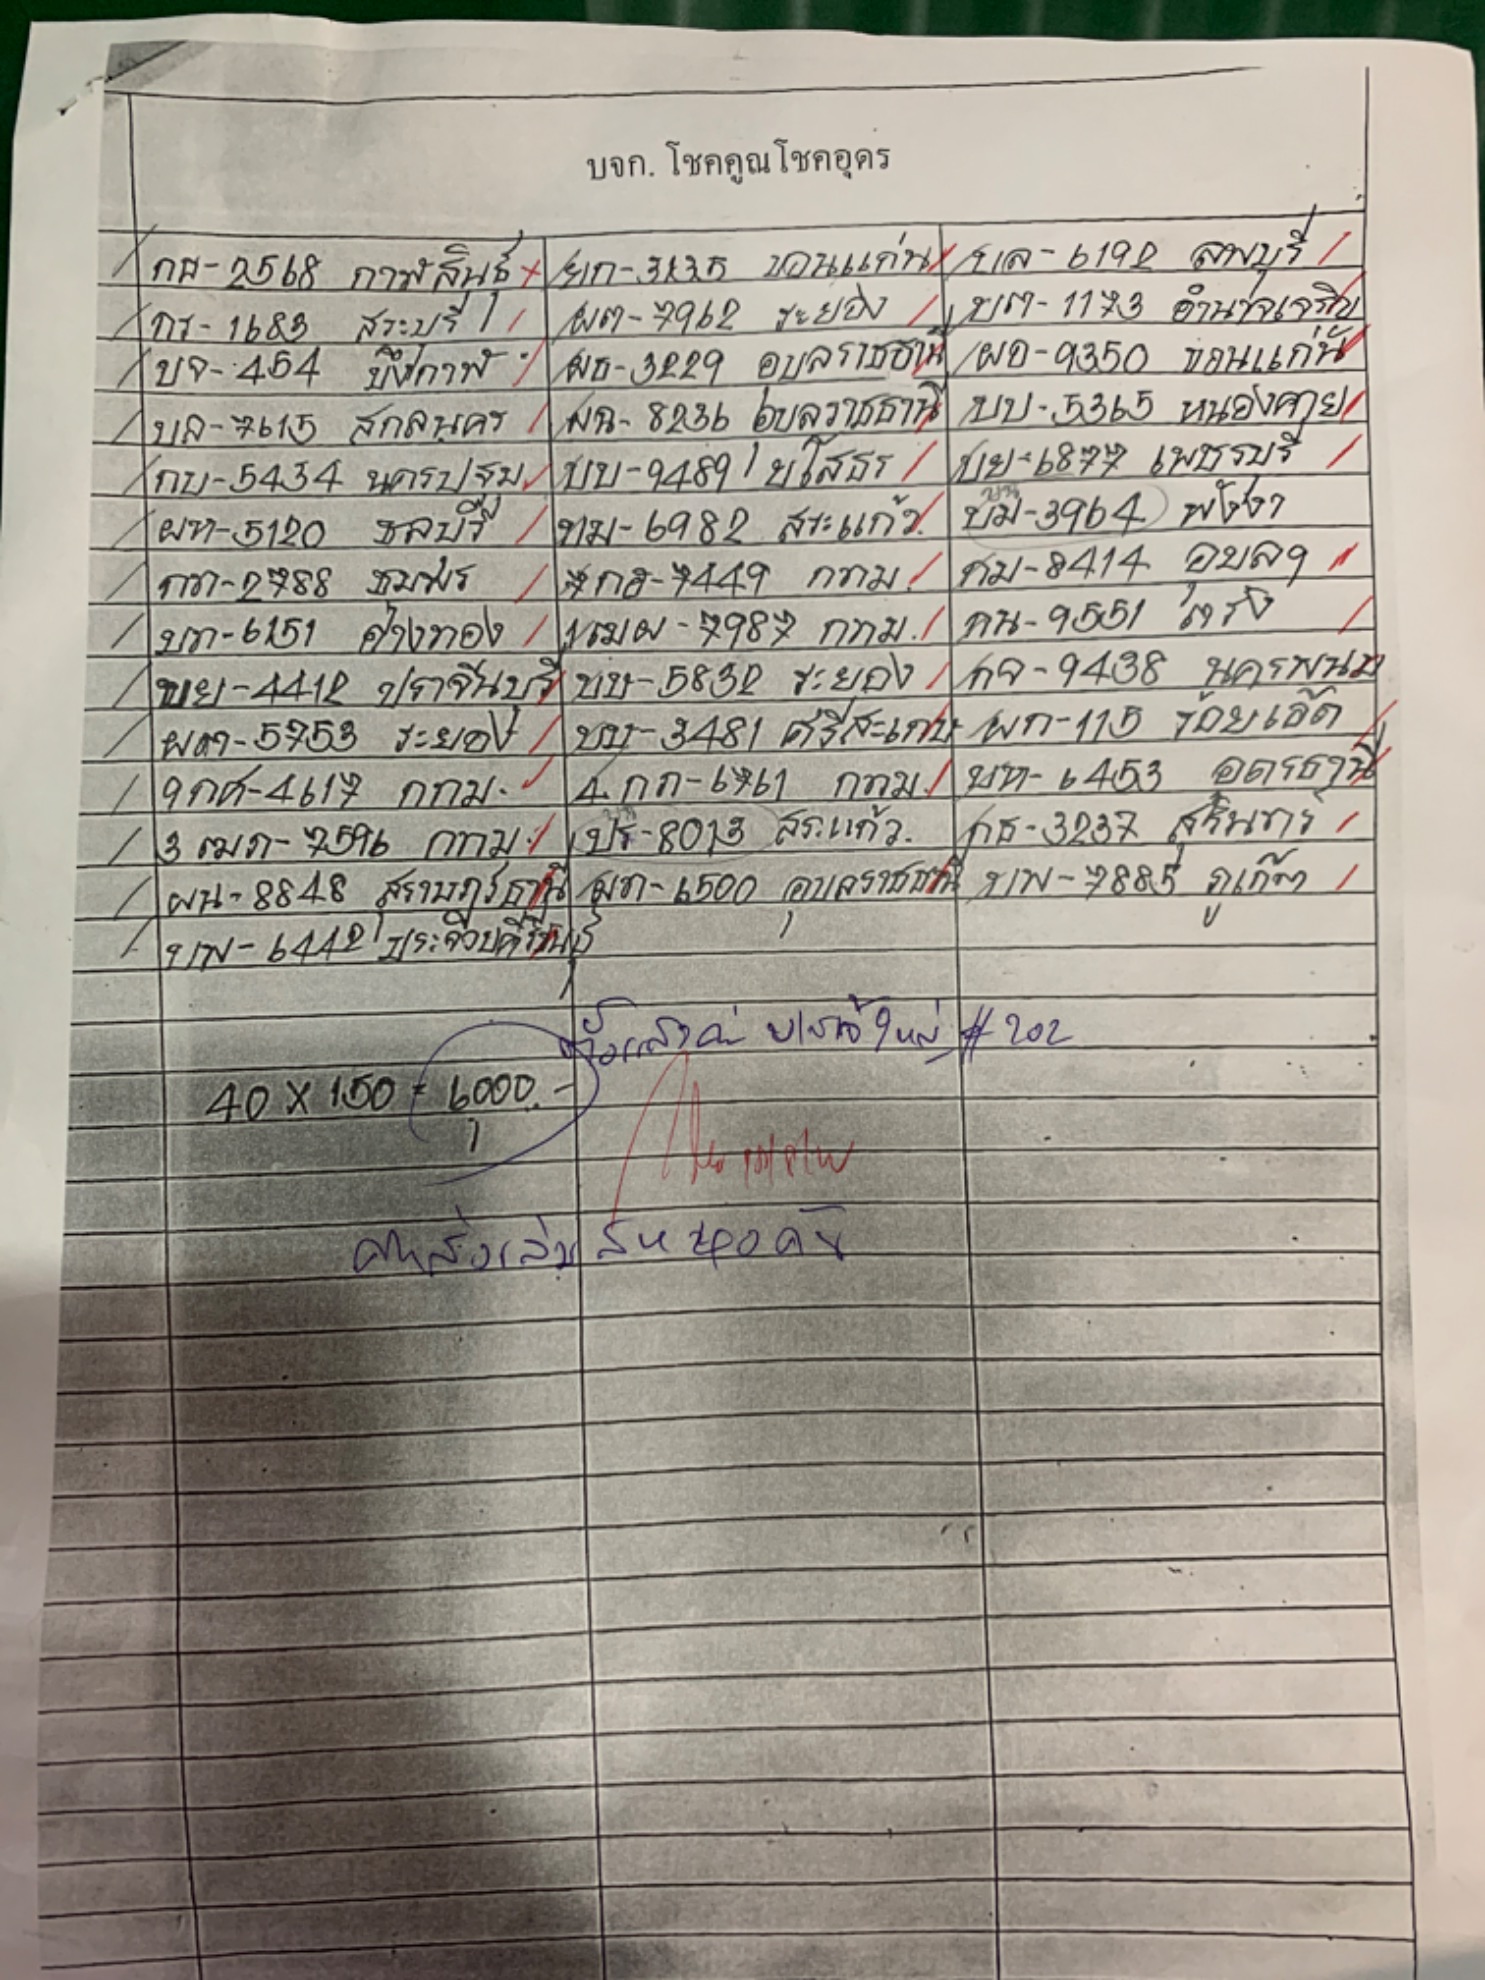 บจก. โชคคูณโชคอุดร
กศ-2568 กาฬสินธุ์ ยก-3235 ขอนแก่น บล-6192 ลพบุรี
กร-1683 สระบุรี ผต-7962 ระยอง บต-1173 อำนาจเจริญ
บจ-454 บึงกาฬ ผธ-3229 อุบลราชธานี ผอ-9350 ขอนแก่น
บล-7615 สกลนคร ผฉ-8236 อุบลราชธานี บบ-5365 หนองคาย
กบ-5434 นครปฐม บบ-9489 ยโสธร บย-6877 เพชรบุรี
ผท-5120 ชลบุรี บม-6982 สระแก้ว บม-3964 พังงา
กต-2788 ชุมพร 7กอ-7449 กทม. กม-8414 อุบลฯ
บท-6151 อ่างทอง 1ฒผ-7987 กทม. กน-9551 ตรัง
บย-4412 ปราจีนบุรี บษ-5832 ระยอง กจ-9438 นครพนม
ผต-5753 ระยอง บบ-3481 ศรีสะเกษ ผก-115 ร้อยเอ็ด
9กศ-4617 กทม. 4กก-6761 กทม. บท-6453 อุดรธานี
3ฒภ-7596 กทม. บร-8013 สระแก้ว. กธ-3237 สุรินทร์
ผน-8848 สุราษฎร์ธานี ผก-6500 อุบลราชธานี บพ-7885 ภูเก็ต
บพ-6442 ประจวบคีรีขันธ์
#202
40 X 150 = 6000.-